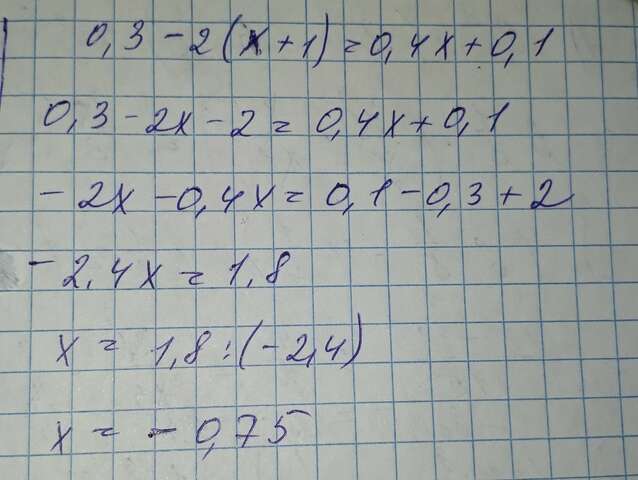 0,3 - 2(x + 1) = 0,4x + 0,1
0,3 - 2x - 2 = 0,4x + 0,1
- 2x - 0,4x = 0,1 - 0,3 + 2
- 2,4x = 1,8
x = 1,8 : (-2,4)
x = - 0,75